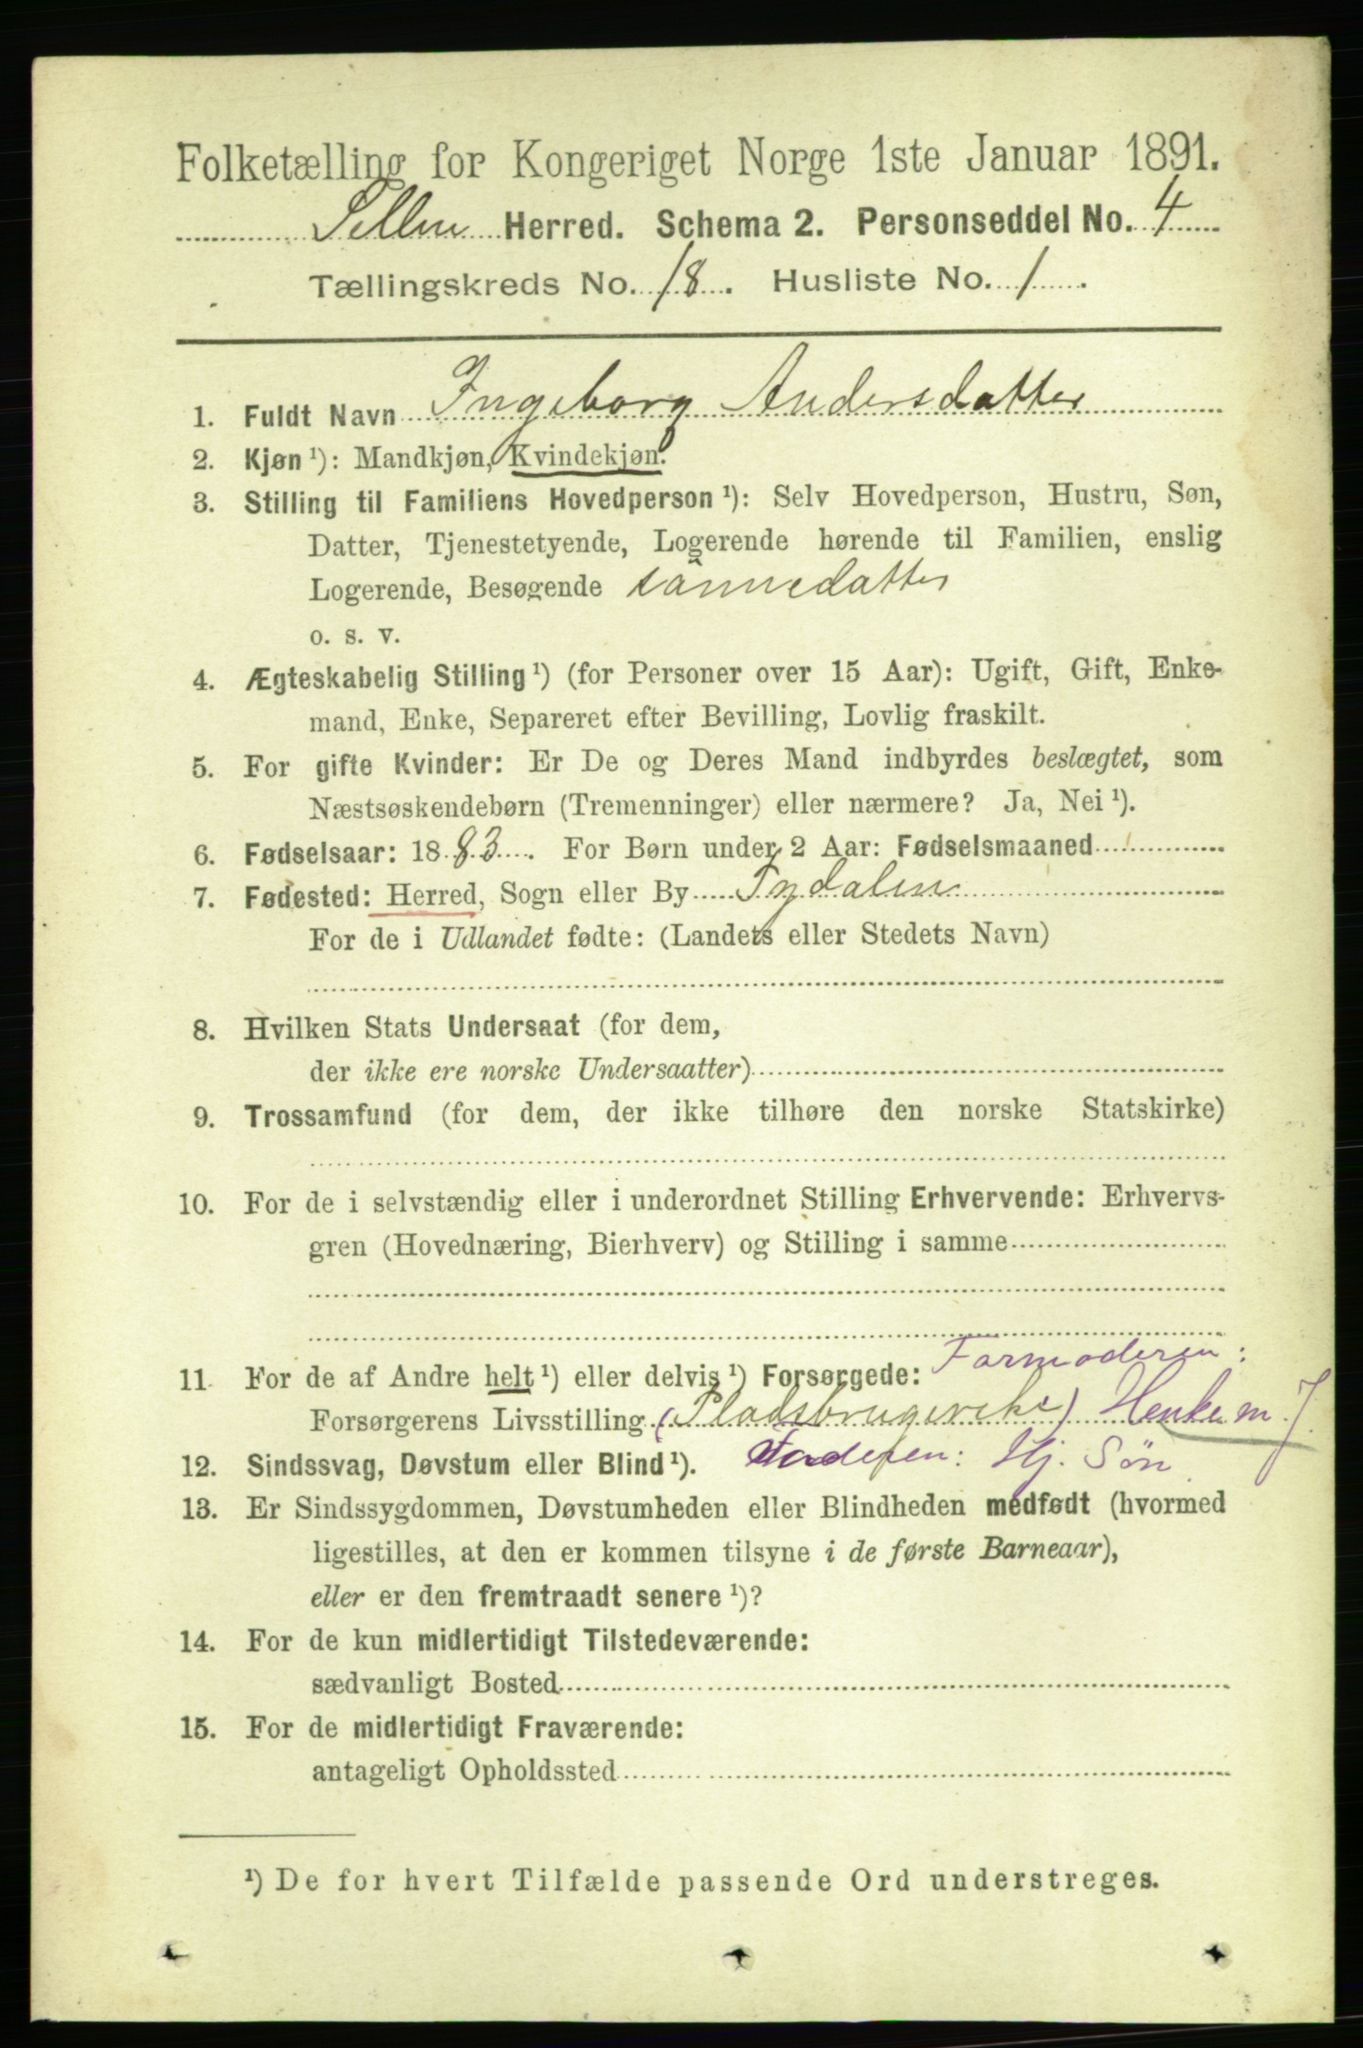 Folketælling for Kongeriget Norge 1ste Januar 1891.
Selbu Herred. Schema 2. Personseddel No. 4
Tællingskreds No. 18. Husliste No. 1.
1. Fuldt Navn Ingeborg Andersdatter
2. Kjøn ¹): Mandkjøn, Kvindekjøn.
3. Stilling til Familiens Hovedperson ¹): Selv Hovedperson, Hustru, Søn,
Datter, Tjenestetyende, Logerende hørende til Familien, enslig
Logerende, Besøgende sønnedatter
o. s. v.
4. Ægteskabelig Stilling ¹) (for Personer over 15 Aar): Ugift, Gift, Enke-
mand, Enke, Separeret efter Bevilling, Lovlig fraskilt.
5. For gifte Kvinder: Er De og Deres Mand indbyrdes beslægtet, som
Næstsøskendebørn (Tremenninger) eller nærmere? Ja, Nei ¹).
6. Fødselsaar: 1883. For Børn under 2 Aar: Fødselsmaaned
7. Fødested: Herred, Sogn eller By Tydalen
For de i Udlandet fødte: (Landets eller Stedets Navn)
8. Hvilken Stats Undersaat (for dem,
der ikke ere norske Undersaatter)
9. Trossamfund (for dem, der ikke tilhøre den norske Statskirke)
10. For de i selvstændig eller i underordnet Stilling Erhvervende: Erhvervs-
gren (Hovednæring, Bierhverv) og Stilling i samme
11 For de af Andre helt ¹) eller delvis ¹) Forsørgede: Farmoderen:
Forsørgerens Livsstilling (Pladsbrugerske)
12. Sindssvag, Døvstum eller Blind ¹). Faderen: Hj. Søn
13. Er Sindssygdommen, Døvstumheden eller Blindheden medfødt (hvormed
ligestilles, at den er kommen tilsyne i de første Barneaar),
eller er den fremtraadt senere ¹)?
14. For de kun midlertidigt Tilstedeværende:
sædvanligt Bosted
15. For de midlertidigt Fraværende:
antageligt Opholdssted
¹) De for hvert Tilfælde passende Ord understreges.